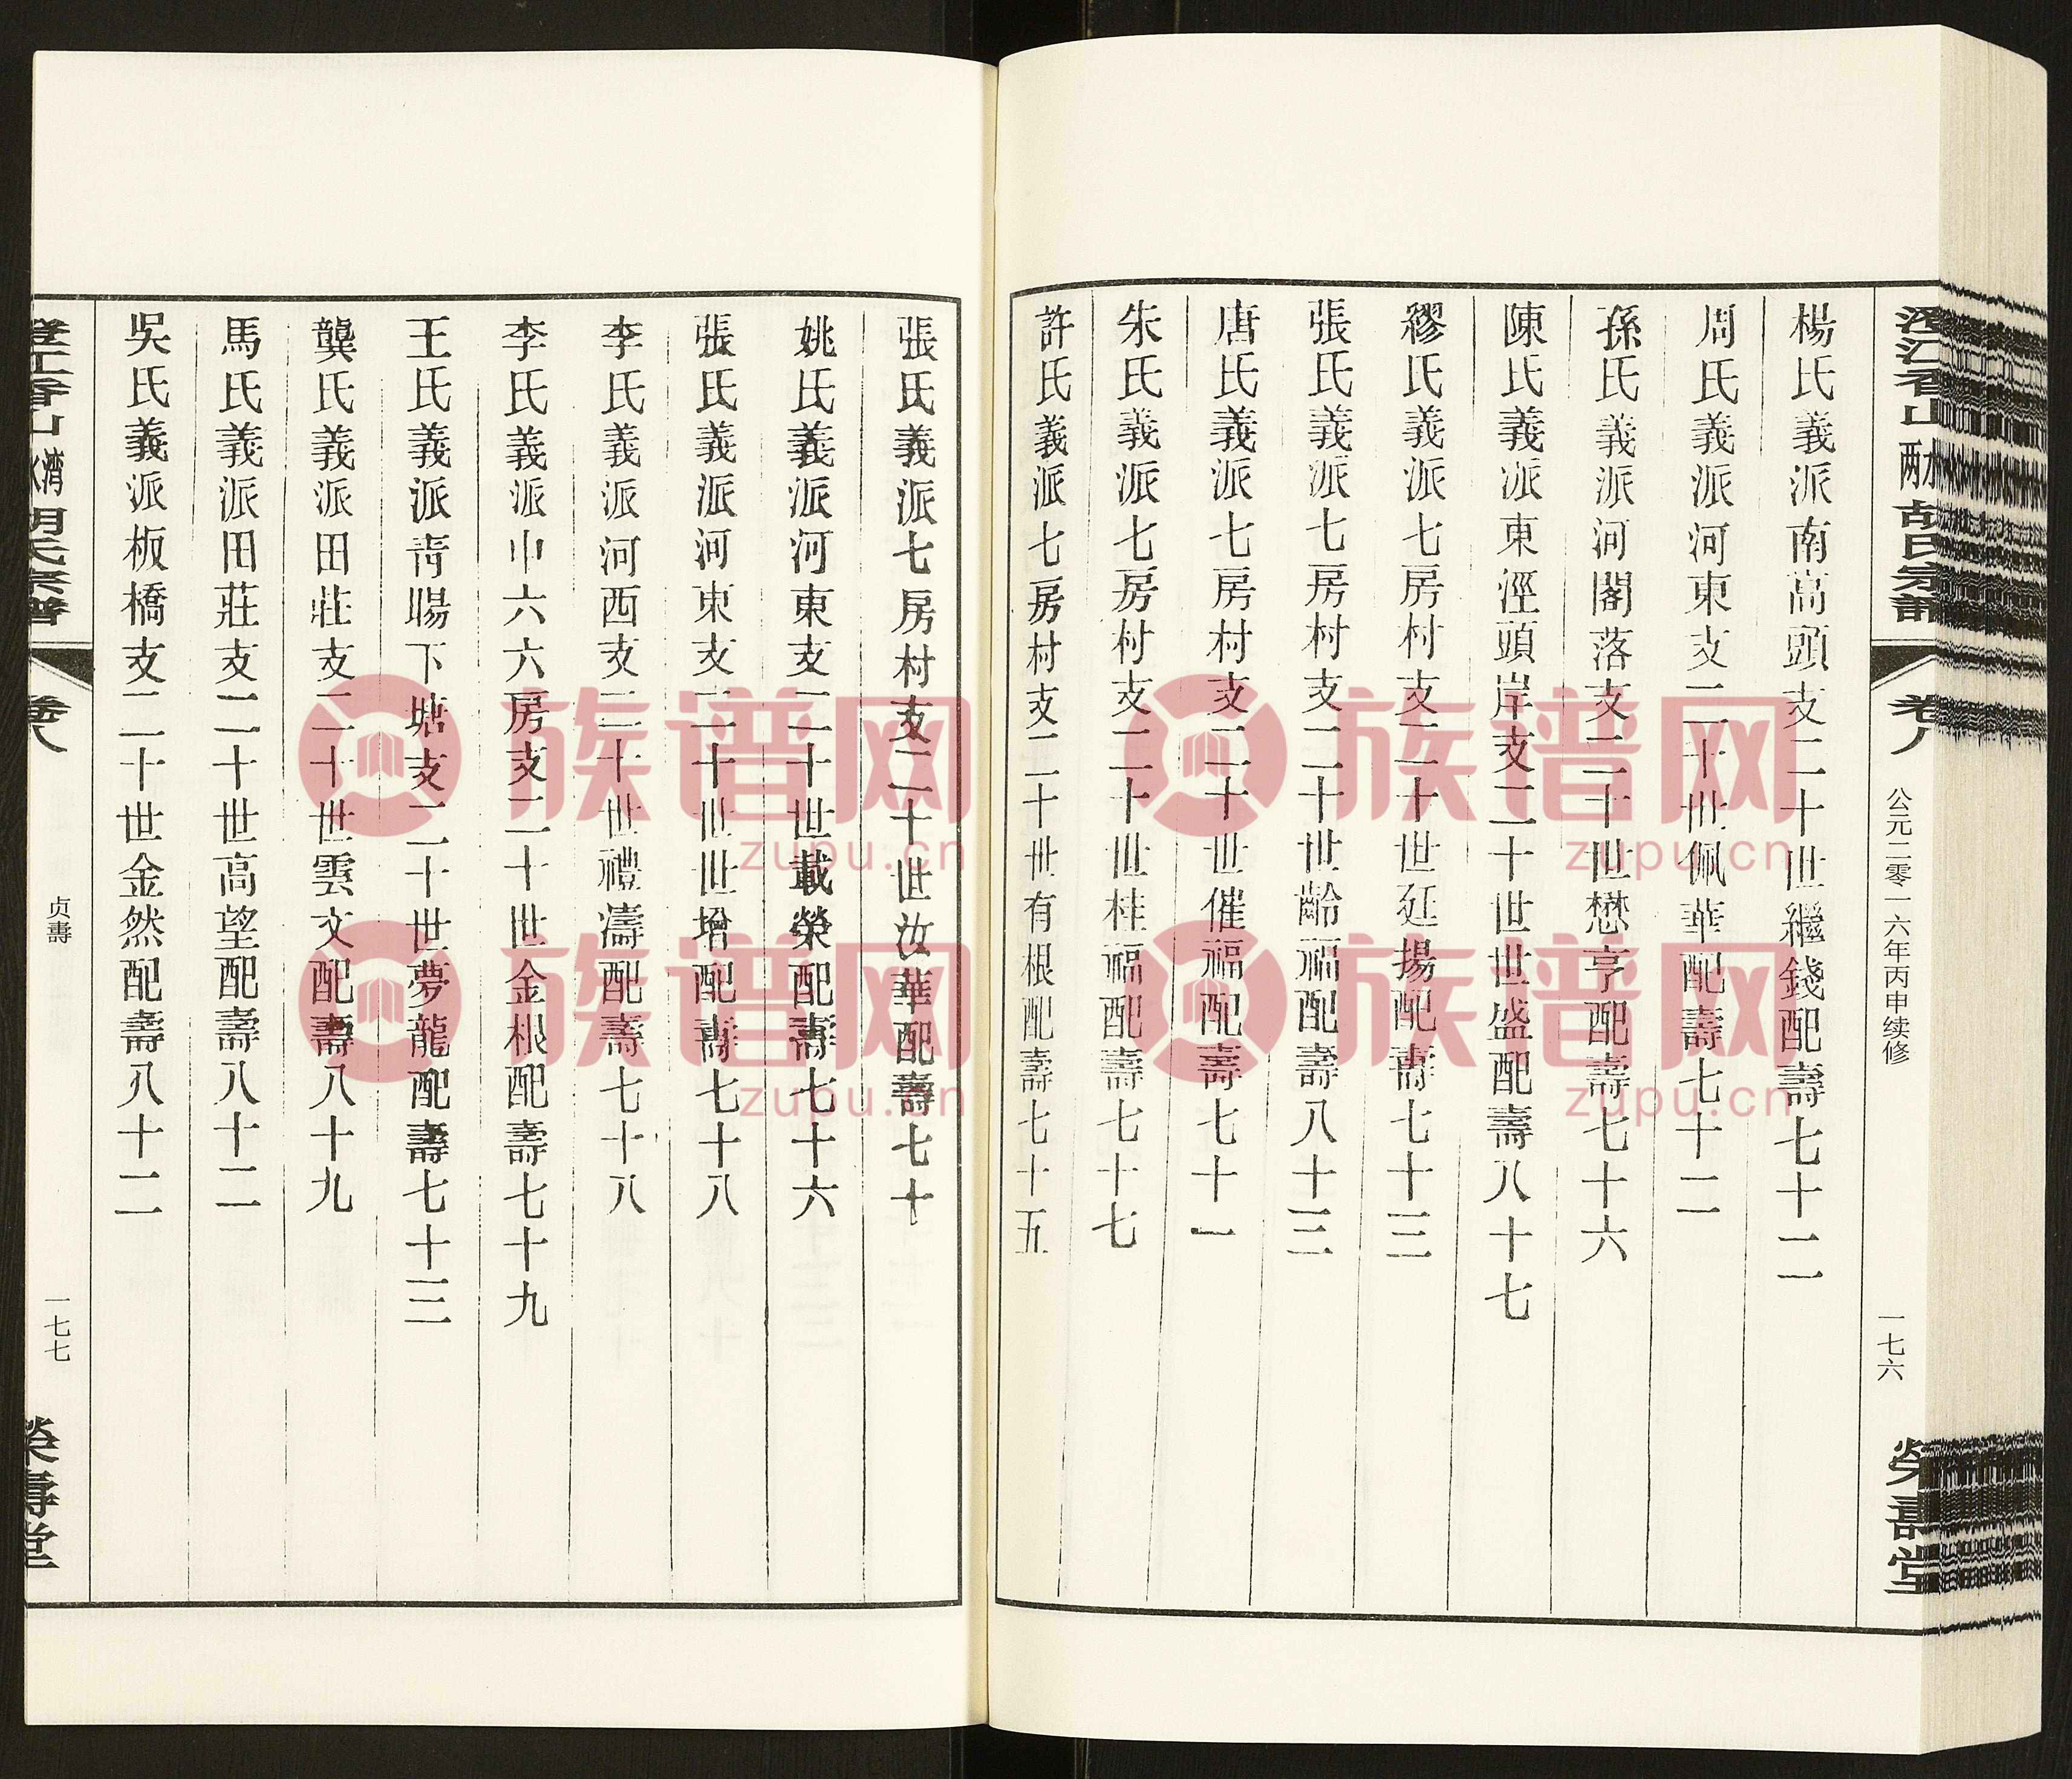 澄江香山兩水胡氏宗譜
卷八
公元二零一六年丙申续修
一七六
榮壽堂
楊氏義派南高頭支二十世繼錢配壽七十二
周氏義派河東支二十世佩華配壽七十二
孫氏義派河閣落支二十世懋亨配壽七十六
陳氏義派東涇頭岸支二十世世盛配壽八十七
繆氏義派七房村支二十世延揚配壽七十三
張氏義派七房村支二十世齡福配壽八十三
唐氏義派七房村支二十世催福配壽七十一
朱氏義派七房村支二十世桂福配壽七十七
許氏義派七房村支二十世有根配壽七十五
張氏義派七房村支二十世汝華配壽七十
姚氏義派河東支二十世載榮配壽七十六
張氏義派河東支二十世世增配壽七十八
李氏義派河西支二十世禮濤配壽七十八
李氏義派巾六六房支二十世金根配壽七十九
王氏義派青暘下塘支二十世夢龍配壽七十三
龔氏義派田莊支二十世雲文配壽八十九
馬氏義派田莊支二十世高望配壽八十二
吳氏義派板橋支二十世金然配壽八十二
卷八
贞壽
一七七
榮壽堂
族谱网
zupu.cn
族谱网
zupu.cn
族谱网
zupu.cn
族谱网
zupu.cn